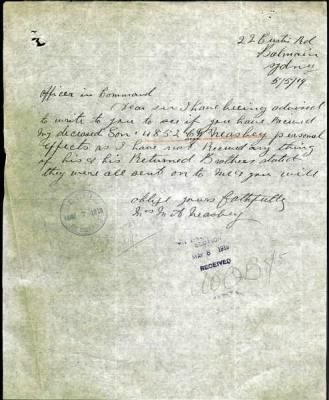 22 Curtis Rd
Balmain
Sydney
5/5/19
Officer in Command
Dear sir I have being advised
to write to you to see if you have Received
My deceased Son 4852 Neashey personal
effects as I have not Received any thing
of his & his Returned Brothers stated
they were all sent on to me & you will
oblige yours faithfully
Mrs M A Neashey
MAY 7 1919
SECTION
MAY 6 1919
RECEIVED